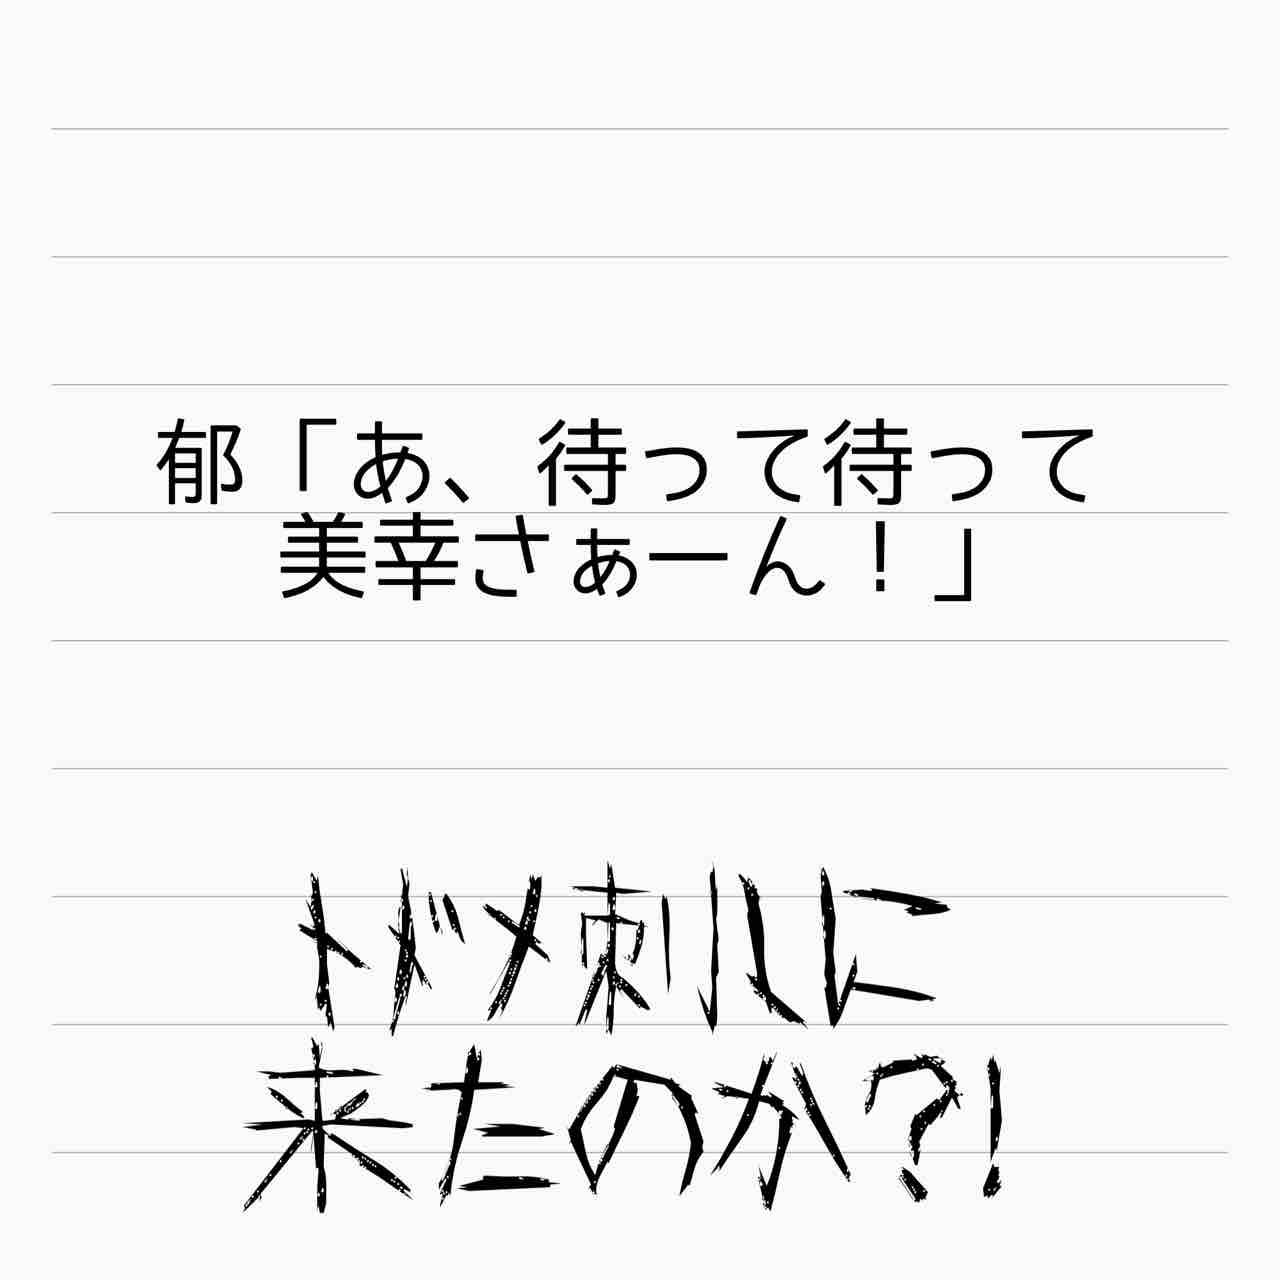 郁「あ、待って待って
美幸さぁーん！」
トドメ刺しに
来たのか?!